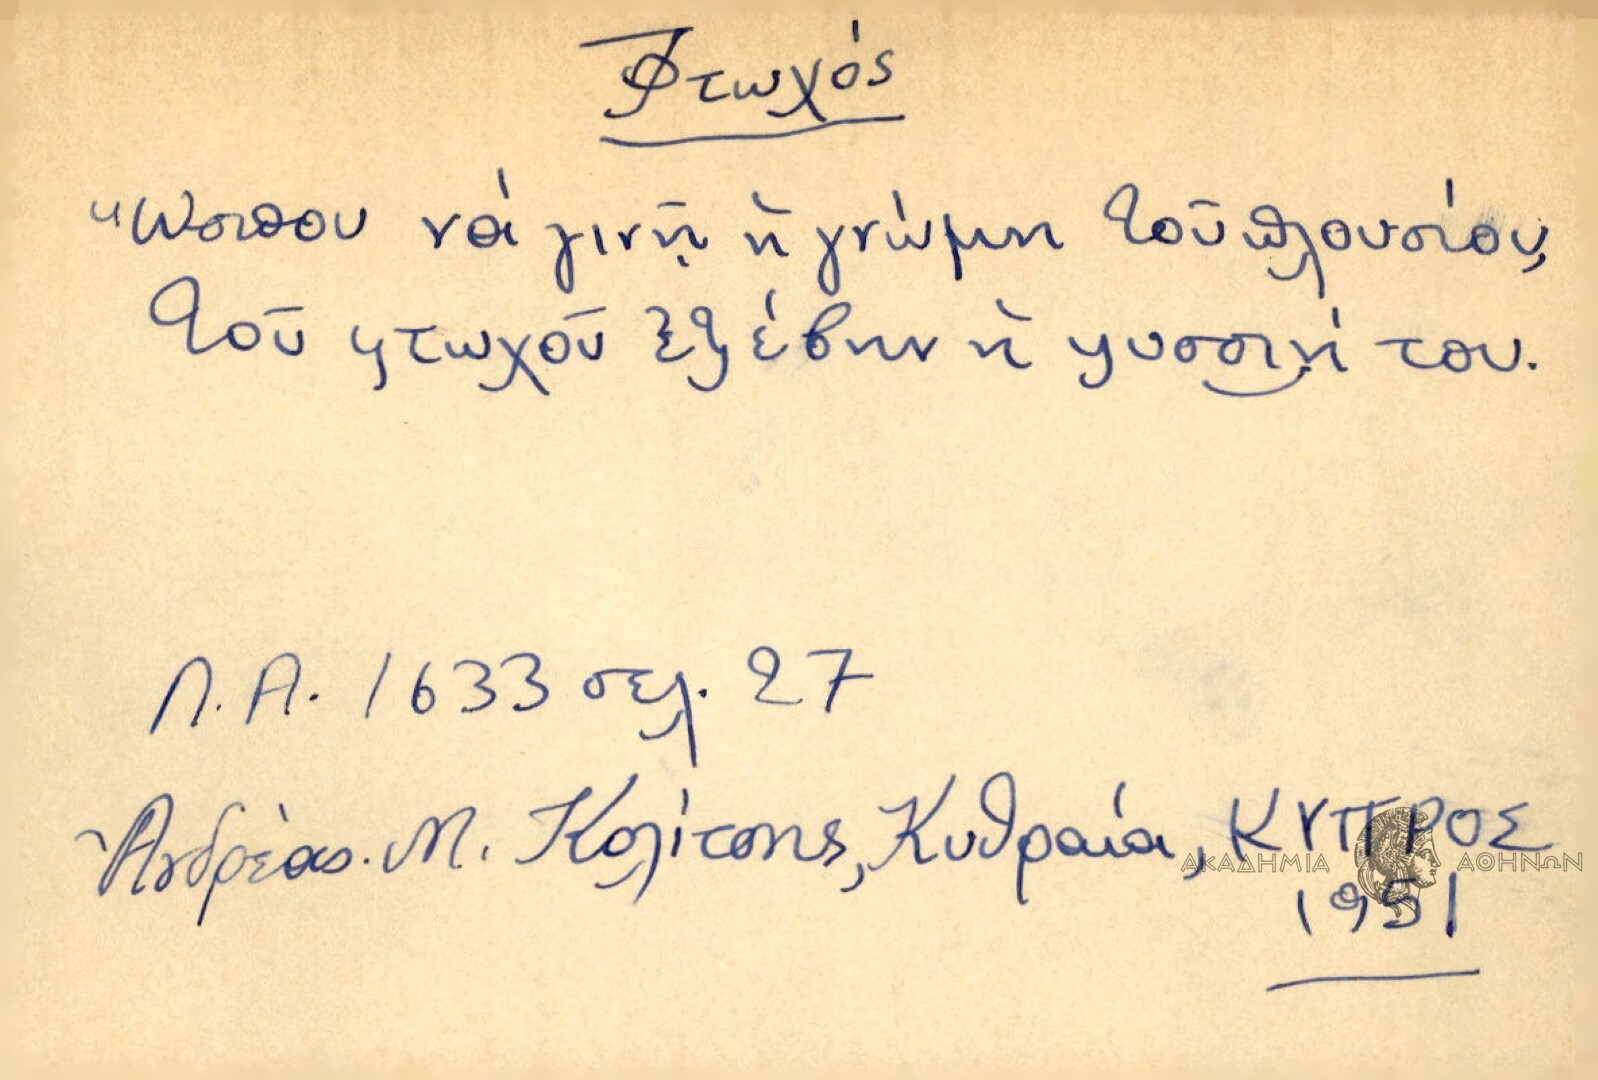 Φτωχός
Ὥσπου νά γινῇ ἡ γνώμη τοῦ πλουσίου,
τοῦ φτωχοῦ ἐξέβην ἡ ψυσσιή του.
Λ.Α. 1633 σελ. 27
Ἀνδρέας Μ. Κολίτσης, Κυθραία, ΚΥΠΡΟΣ
ΑΚΑΔΗΜΙΑ ΑΘΗΝΩΝ
1951